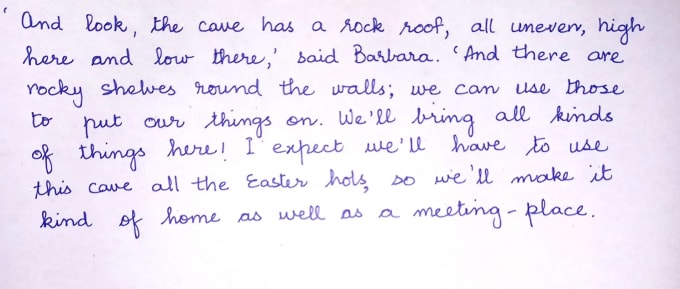 'And look, the cave has a rock roof, all uneven, high
here and low there,' said Barbara. 'And there are
rocky shelves round the walls; we can use those
to put our things on. We'll bring all kinds
of things here! I expect we'll have to use
this cave all the Easter hols, so we'll make it
kind of home as well as a meeting-place.